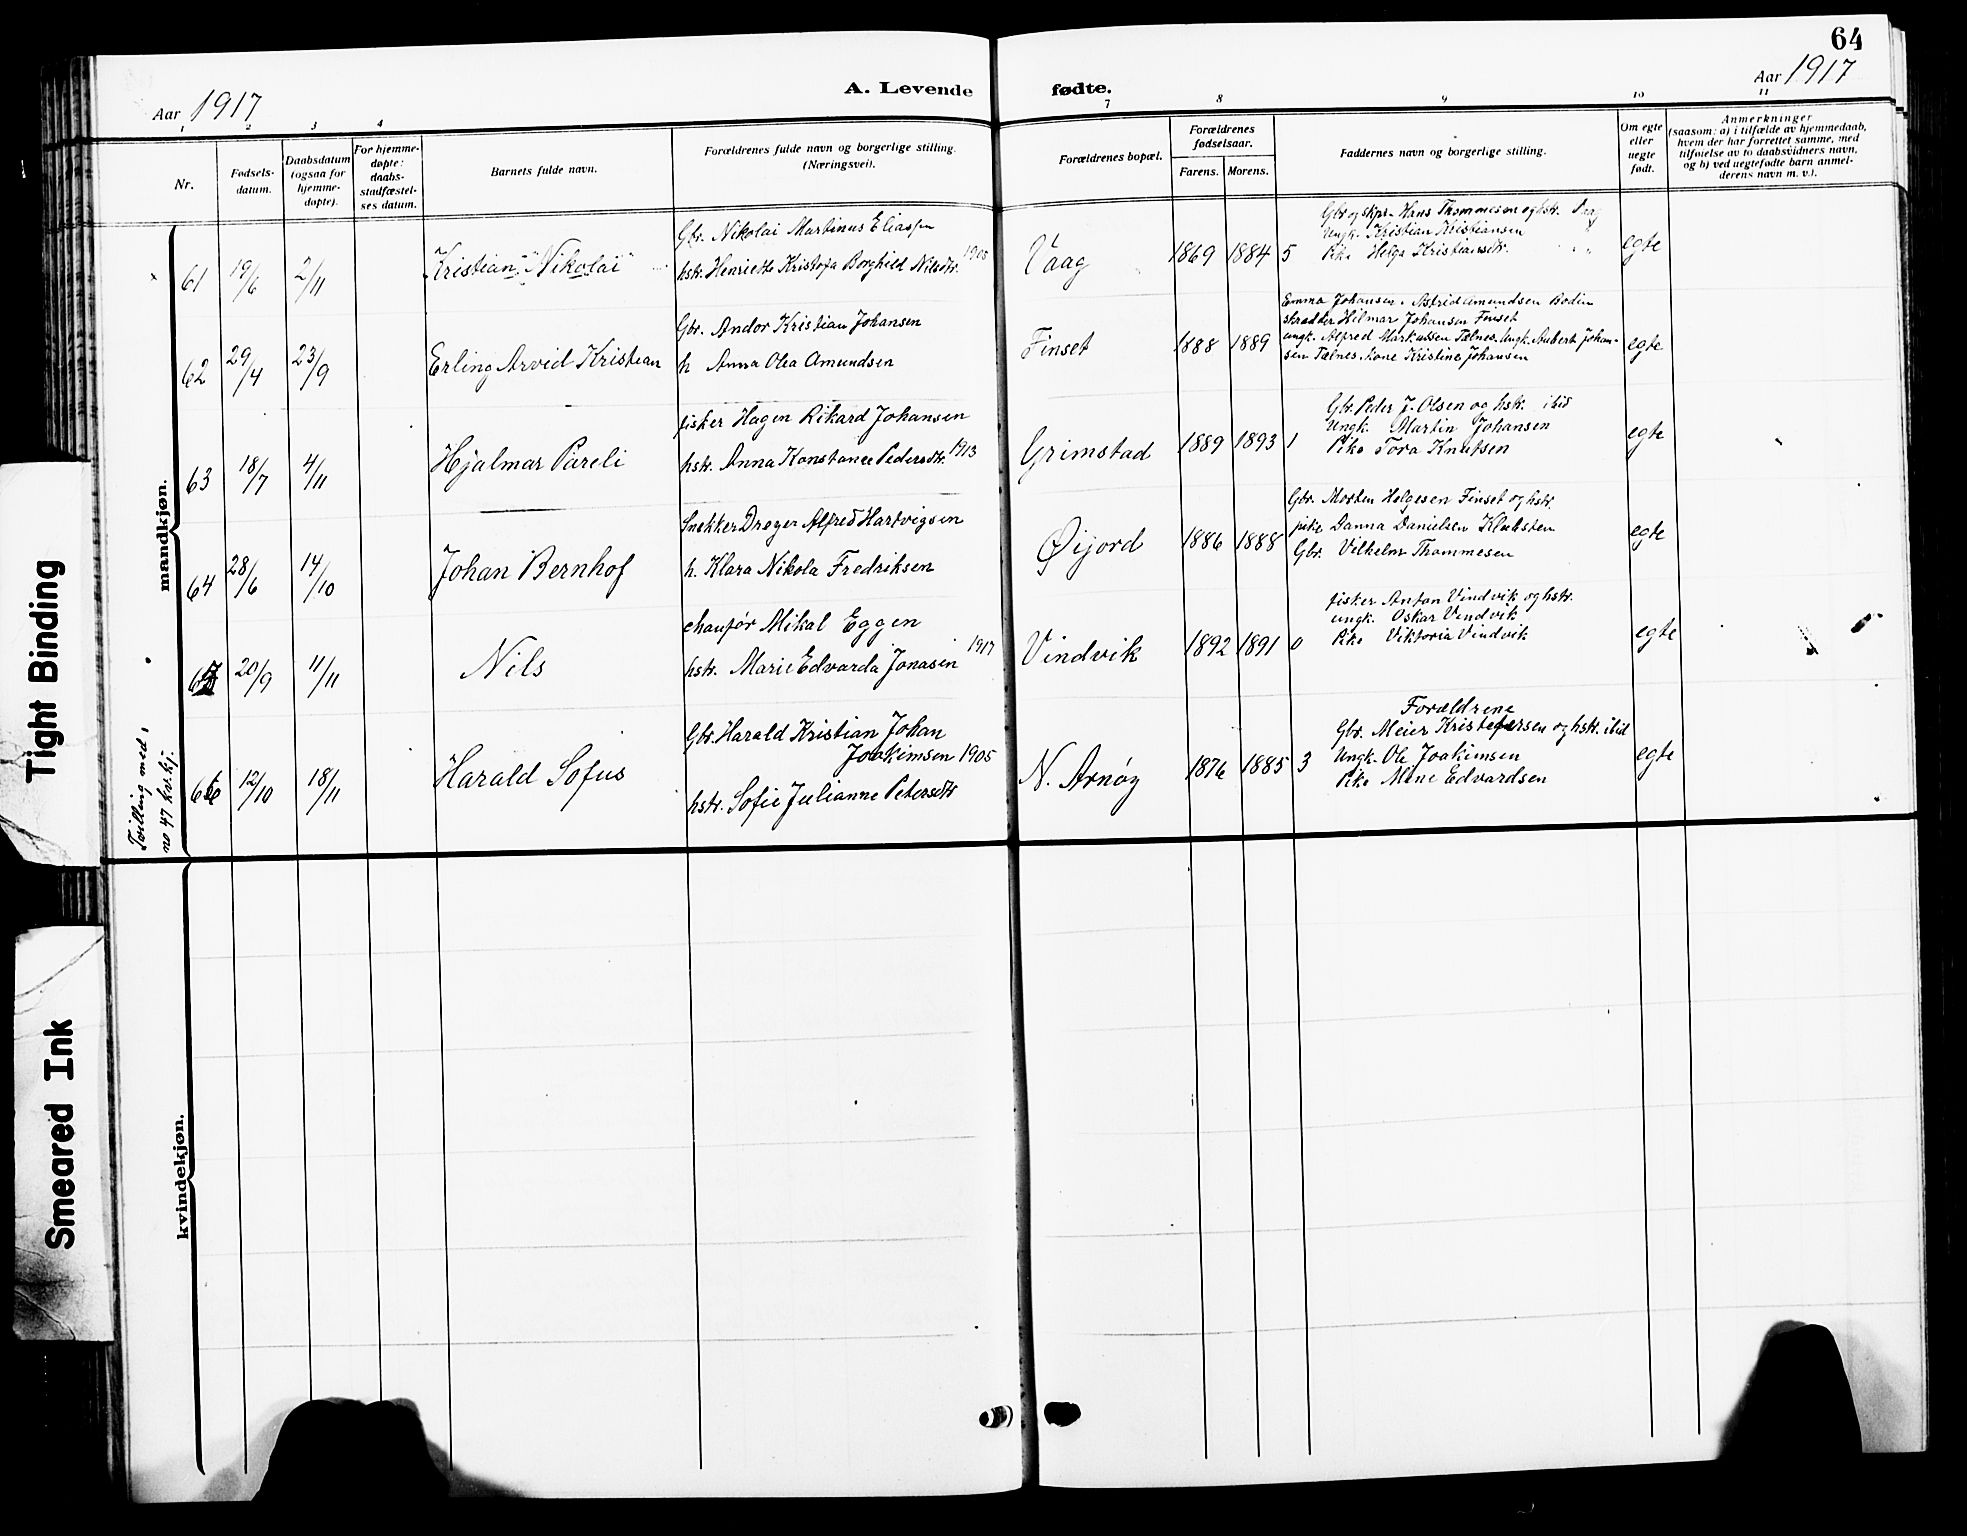 64
Aar 1917
A. Levende
fødte.
Aar 1917
1 2 3 4
7 8 9 10 11
Nr.
Fødsels-
datum.
Daabsdatum
(ogsaa for
hjemme-
døpte).
For hjemme-
døpte:
daabs-
stadfæstel-
ses datum.
Barnets fulde navn.
Forældrenes fulde navn og borgerlige stilling.
(Næringsvei).
Forældrenes bopæl.
Forældrenes
fødselsaar.
Farens. Morens.
Faddernes navn og borgerlige stilling.
Om egte
eller
uegte
født.
Anmerkninger
(saasom: a) i tilfælde av hjemmedaab,
hvem der har forrettet samme, med
tilføielse av to daabsvidners navn,
og b) ved uegtefødte barn anmel-
derens navn m. v.).
mandkjøn.
61 19/6 2/11 "Kristian" "Nikolai"
Gbr. Nikolai Martinus Eliassen
hstr. Henriette Kristofa Borghild Nilsdtr. 1905
Vaag 1869 1884 5
Gbr og skpr. Hans Thommesen og hstr. Vaag
Ungk. Kristian Kristiansen
Pike Helga Kristiansdtr. " "
egte
62 29/4 23/9 Erling Arvid Kristian
Gbr. Andor Kristian Johansen
h Anna Olea Amundsen
Finset 1888 1889
Emma Johansen. Astrid Amundsen Bodin
skrædder Hilmar Johansen Finset
ungk. Alfred Markussen Tælnes. Ungk. Aubert Johan-
sen Tælnes. Kone Kristine Johansen
egte
63 18/7 4/11 Hjalmar Pareli
fisker Hagen Rikard Johansen
hstr. Anna Konstance Pedersdtr. 1913
Grimstad 1889 1893 1
Gbr. Peder J. Olsen og hstr. ibid
Ungk. Martin Johansen
Pike Tora Knutsen
egte
64 28/6 14/10 Johan Bernhof
Snekker Dreyer Alfred Hartvigsen
h. Klara Nikola Fredriksen
Øijord 1886 1888
Gbr. Morten Helgesen Finset og hstr.
pike Danna Danielsen
Gbr. Vilhelm Thommesen
egte
65 20/9 11/11 Nils
chaufør Mikal Eggen
hstr. Marie Edvarda Jonasen 1917
Vindvik 1892 1891 0
fisker Anton Vindvik og hstr.
ungk. Oskar Vindvik
Pike Viktoria Vindvik
egte
Tvilling med
no 47 kv.kj.
66 12/10 18/11 Harald Sofus
Gbr. Harald Kristian Johan
Joakimsen 1905
hstr. Sofie Julianne Petersdtr
N. Arnøy 1876 1885 3
Forældrene
Gbr. Meier Kristofersen og hstr. ibid
Ungk. Ole Joakimsen
Pike Mine Edvardsen
egte
kvindekjøn.
Tight Binding
Smeared Ink